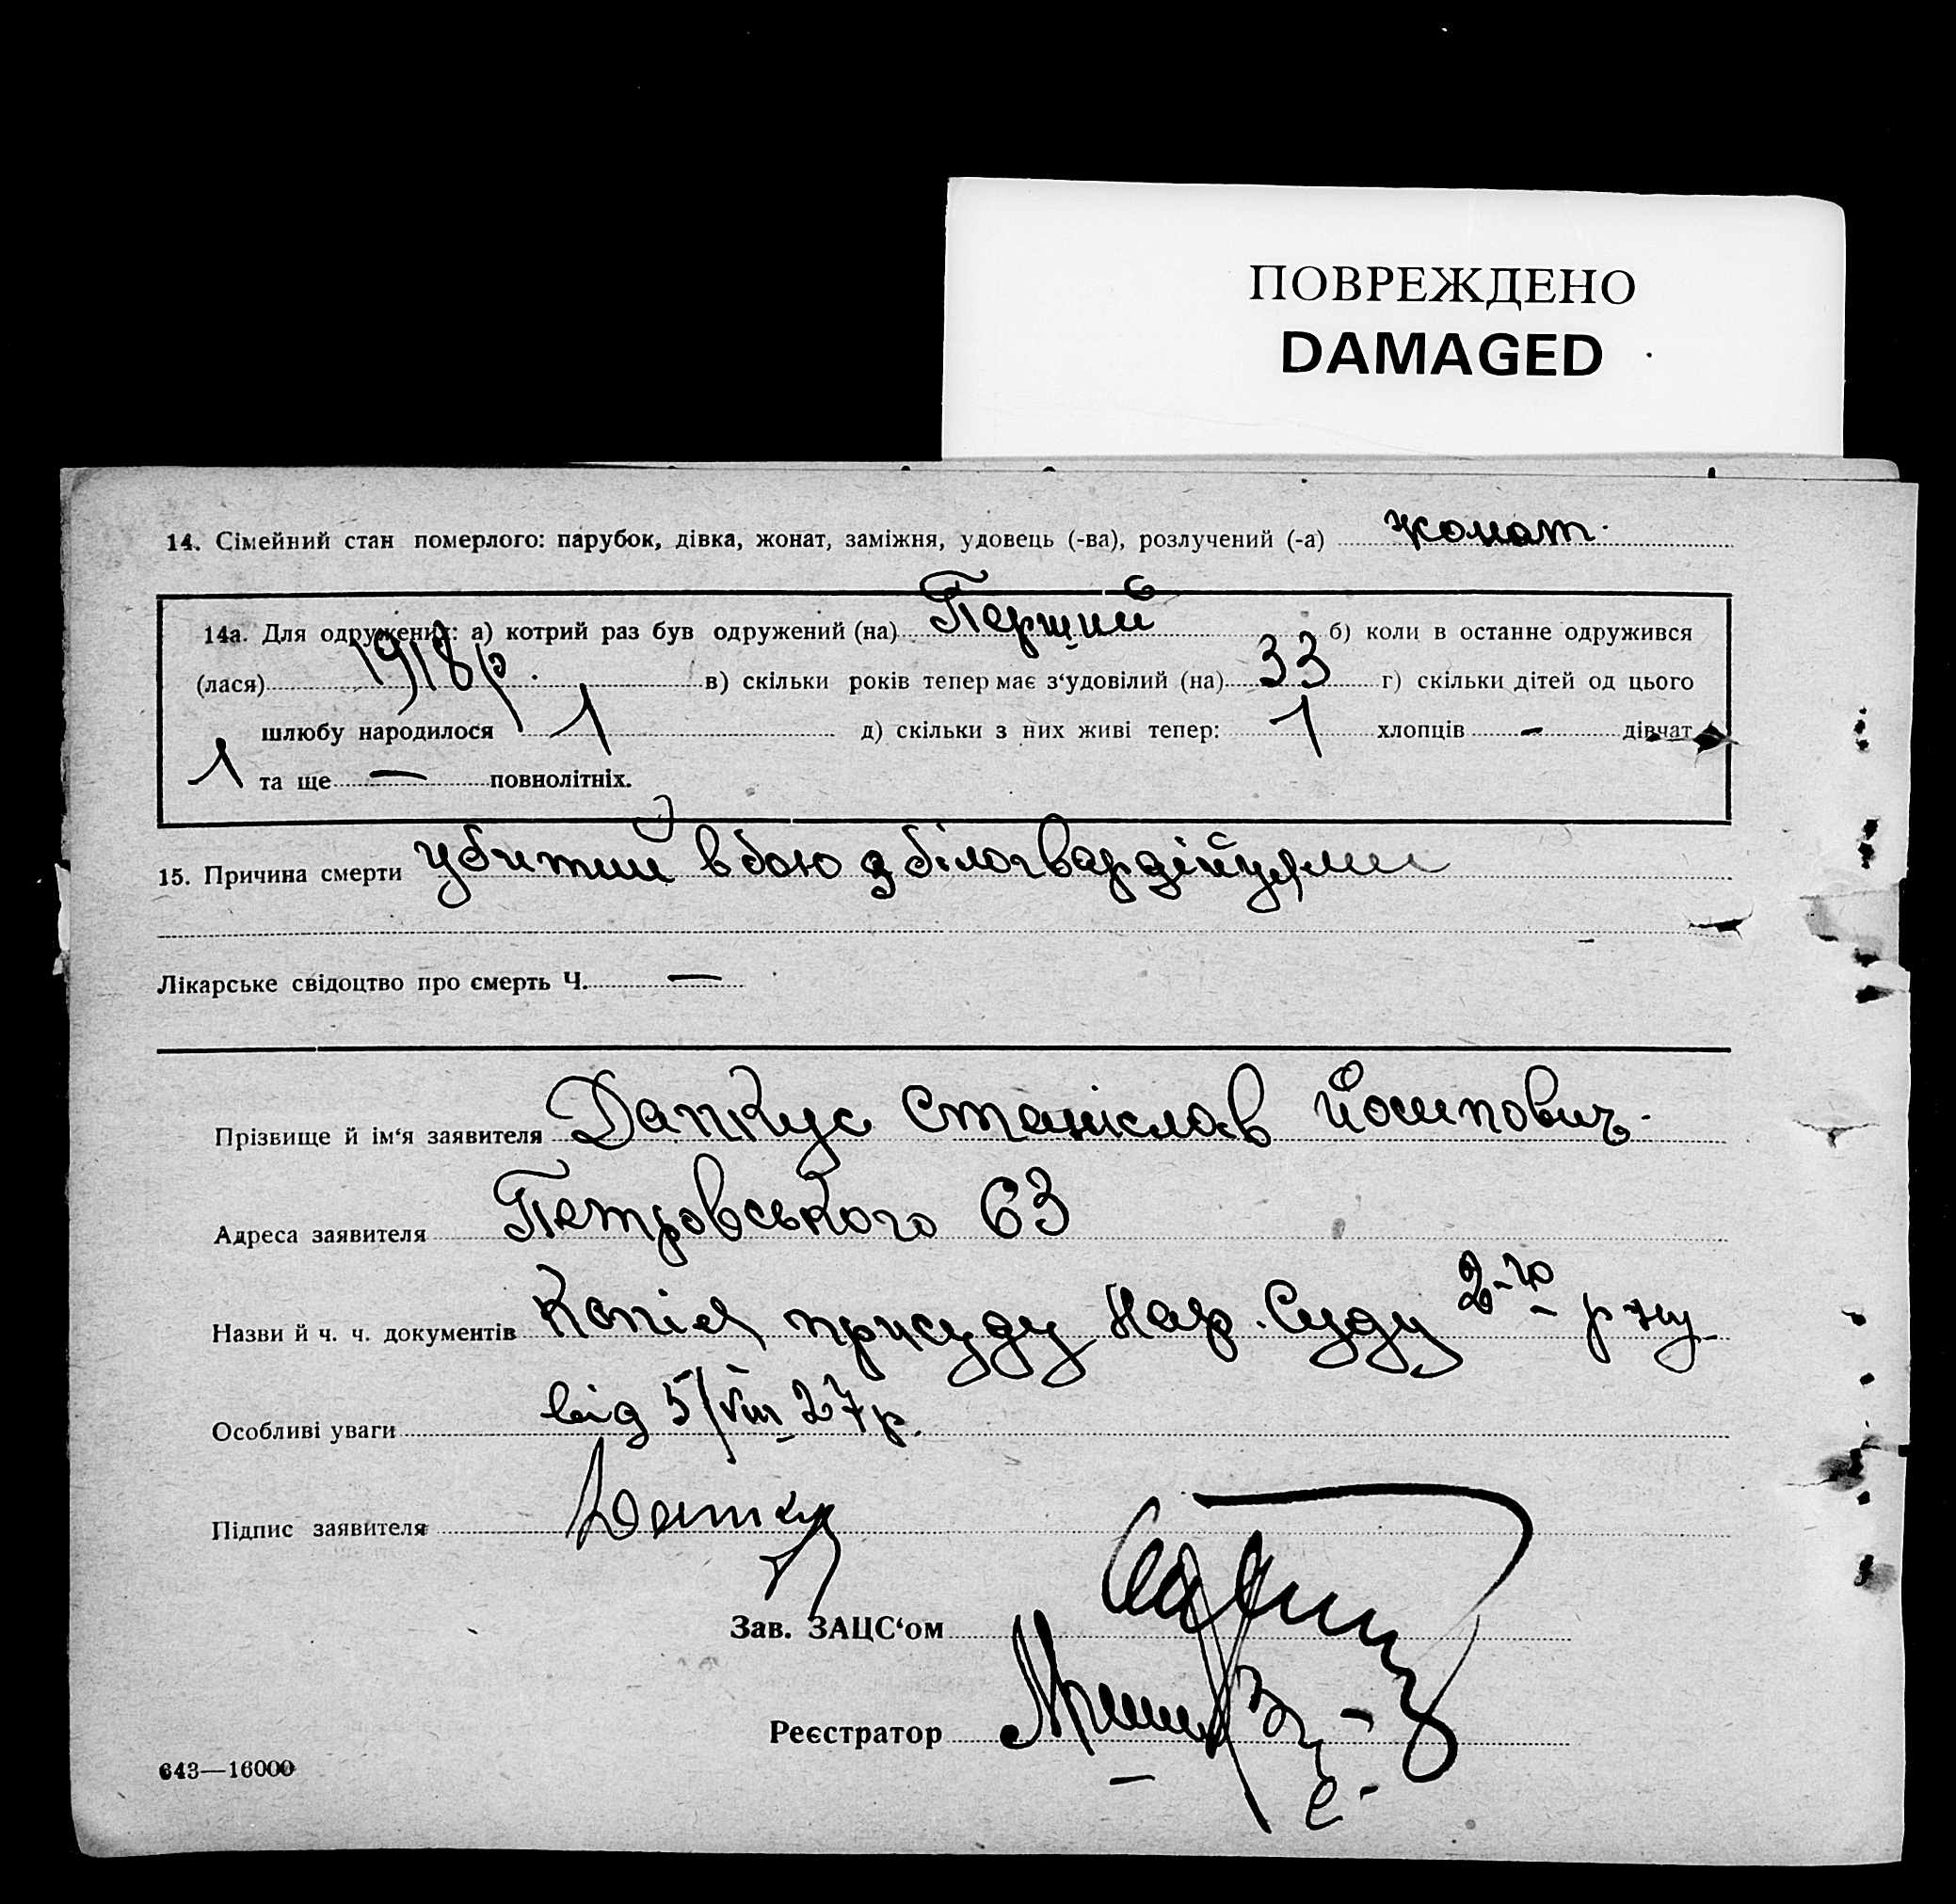 ПОВРЕЖДЕНО
DAMAGED
14. Сімейний стан померлого: парубок, дівка, жонат, заміжня, удовець (-ва), розлучений (-а) жонат.
14а. Для одружених: а) котрий раз був одружений (на) Перший б) коли в останне одружився
(лася) 1918 р. в) скільки років тепер має з‘удовілий (на) 33 г) скільки дітей од цього
шлюбу народилося 1 д) скільки з них живі тепер: 1 хлопців - дівчат
1 та ще — повнолітніх.
15. Причина смерти убитий в бою з білогвардійцями
Лікарське свідоцтво про смерть Ч. —
Прізвище й ім‘я заявителя Дапкус Станіслав Йосипович.
Адреса заявителя Петровського 63
Назви й ч. ч. документів Копія присуду Нар. Суду 2-го р-ну
Особливі уваги від 5/VIII 27 р.
Підпис заявителя
Зав. ЗАЦС‘ом
Реєстратор
643—16000